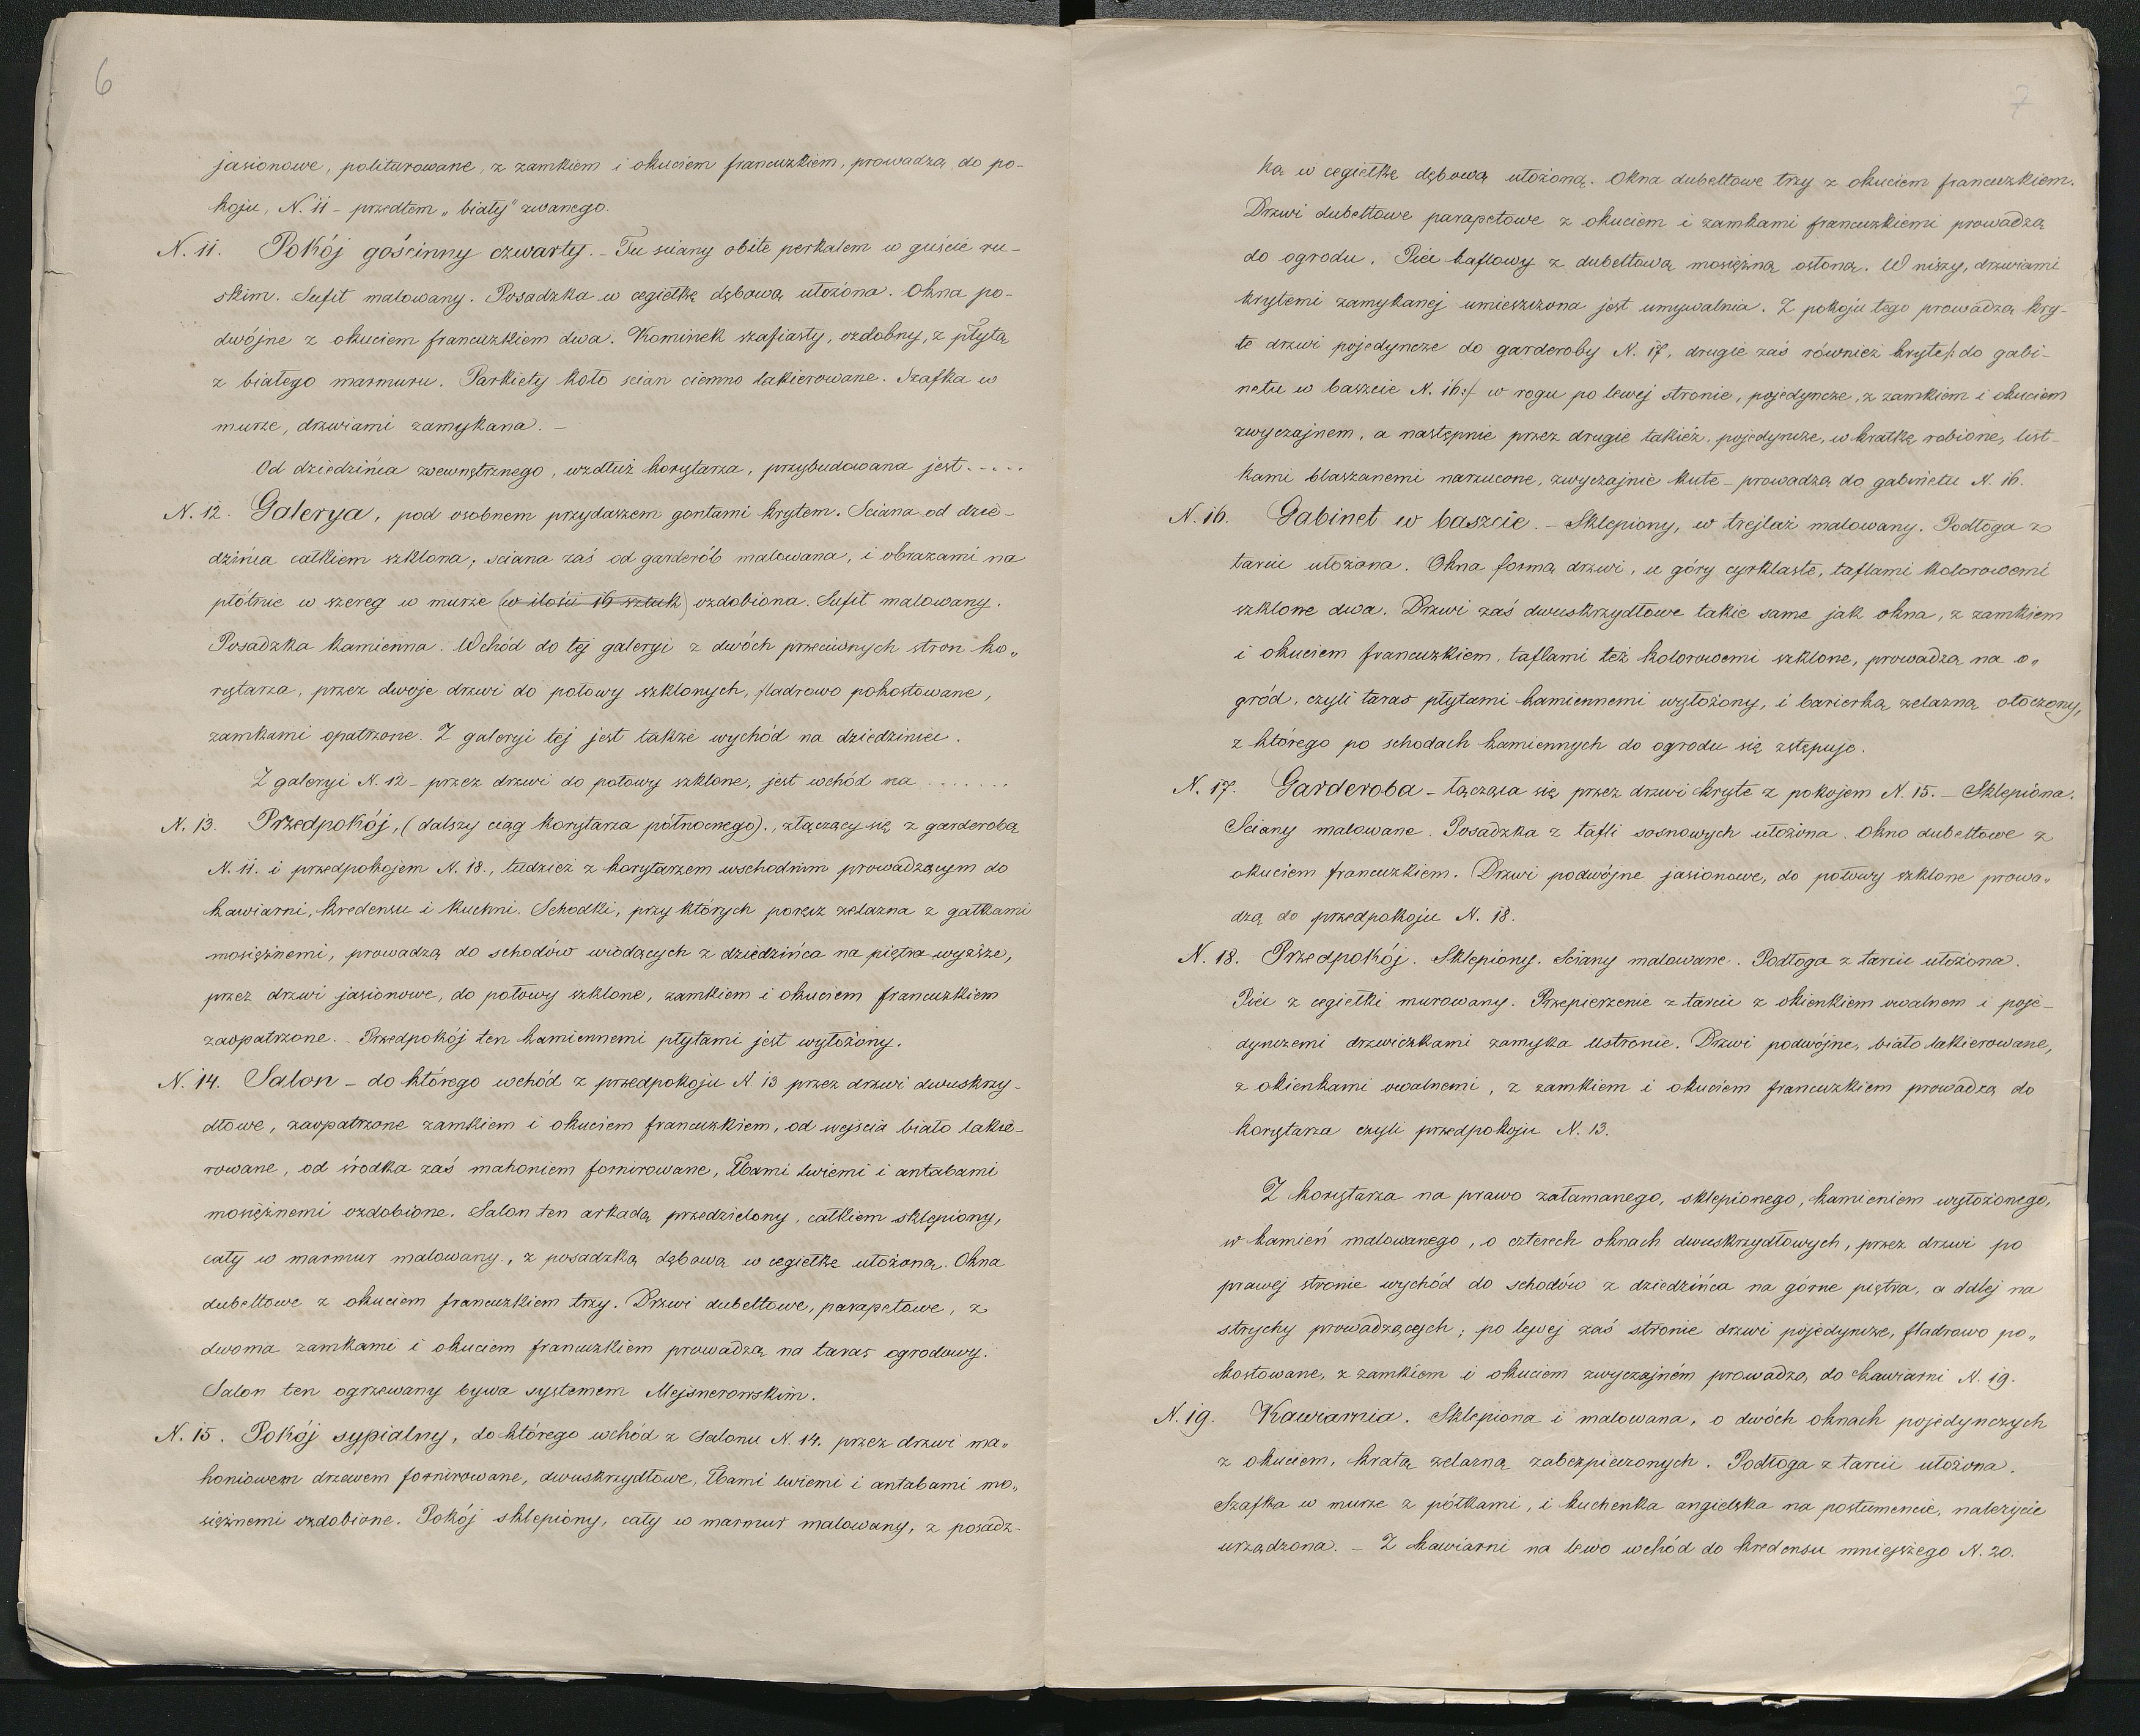 6
jasionowe, politurowane, z zamkiem i okuciem francuzkiem, prowadzą do po-
koju, N. 11 - przedtem „biały" zwanego.
N. 11. Pokój gościnny czwarty. - Tu sciany obite perkalem w guście ru-
skim. Sufit malowany. Posadzka w cegiełkę dębową ułożona. Okna po-
dwójne z okuciem francuzkiem dwa. Kominek szafiasty, ozdobny, z płytą
z białego marmuru. Parkiety koło scian ciemno lakierowane. Szafka w
murze, drzwiami zamykana. -
Od dziedzińca zwewnętrznego, wzdłuż korytarza, przybudowana jest.....
N. 12. Galerya, pod osobnem przydaszem gontami krytem. Sciana od dzie-
dzińca całkiem szklona; sciana zaś od garderób malowana, i obrazami na
płótnie w szereg w murze (w ilości 16 sztuk) ozdobiona. Sufit malowany.
Posadzka kamienna. Wchód do tej galeryi z dwóch przeciwnych stron ko„
rytarza, przez dwoje drzwi do połowy szklonych, fladrowo pokostowane,
zamkami opatrzone. Z galeryi tej jest także wychód na dziedziniec.
Z galeryi N. 12 - przez drzwi do połowy szklone, jest wchód na .......
N. 13. Przedpokój, (dalszy ciąg korytarza północnego)., złączący się z garderobą
N. 11. i przedpokojem N. 18., tudzież z korytarzem wschodnim prowadzącym do
kawiarni, kredensu i kuchni. Schodki, przy których poręcz żelazna z gałkami
mosiężnemi, prowadzą do schodów wiodących z dziedzińca na piętra wyższe,
przez drzwi jasionowe, do połowy szklone, zamkiem i okuciem francuzkiem
zaopatrzone. - Przedpokój ten kamiennemi płytami jest wyłożony.
N. 14. Salon - do którego wchód z przedpokoju N. 13 przez drzwi dwuskrzy-
dłowe, zaopatrzone zamkiem i okuciem francuzkiem, od wejscia biało lakie-
rowane, od środka zaś mahoniem fornirowane, łbami lwiemi i antabami
mosiężnemi ozdobione. Salon ten arkadą przedzielony, całkiem sklepiony,
cały w marmur malowany, z posadzką dębową w cegiełkę ułożoną. Okna
dubeltowe z okuciem francuzkiem trzy. Drzwi dubeltowe, parapetowe, z
dwoma zamkami i okuciem francuzkiem prowadzą na taras ogrodowy.
Salon ten ogrzewany bywa systemem Mejsnerowskim.
N. 15. Pokój sypialny, do którego wchód z Salonu N. 14. przez drzwi ma„
honiowem drzewem fornirowane, dwuskrzydłowe, łbami lwiemi i antabami mo„
siężnemi ozdobione. Pokój sklepiony, cały w marmur malowany, z posadz-
7
ką w cegiełkę dębową ułożoną. Okna dubeltowe trzy z okuciem francuzkiem.
Drzwi dubeltowe parapetowe z okuciem i zamkami francuzkiemi prowadzą
do ogrodu. Piec kaflowy z dubeltową mosiężną osłoną. W niszy, drzwiami
krytemi zamykanej umieszczona jest umywalnia. Z pokoju tego prowadzą kry-
te drzwi pojedyncze do garderoby N. 17, drugie zaś również kryte /: do gabi-
netu w baszcie N. 16 :/ w rogu po lewej stronie, pojedyncze, z zamkiem i okuciem
zwyczajnem, a następnie przez drugie takież, pojedyncze, w kratkę robione, list-
kami blaszanemi narzucone, zwyczajnie kute - prowadzą do gabinetu N. 16.
N. 16. Gabinet w baszcie. - Sklepiony, w trejlaż malowany. Podłoga z
tarcic ułożona. Okna formą drzwi, u góry cyrklaste, taflami kolorowemi
szklone dwa. Drzwi zaś dwuskrzydłowe takie same jak okna, z zamkiem
i okuciem francuzkiem, taflami też kolorowemi szklone, prowadzą na o„
gród, czyli taras płytami kamiennemi wyłożony, i barierką żelazną otoczony,
z którego po schodach kamiennych do ogrodu się zstępuje.
N. 17. Garderoba - łącząca się przez drzwi kryte z pokojem N. 15. - Sklepiona.
Sciany malowane. Posadzka z tafli sosnowych ułożona. Okno dubeltowe z
okuciem francuzkiem. Drzwi podwójne jasionowe, do połowy szklone prowa„
dzą do przedpokoju N. 18.
N. 18. Przedpokój. Sklepiony. Sciany malowane. Podłoga z tarcic ułożona.
Piec z cegiełki murowany. Przepierzenie z tarcic z okienkiem owalnem i poje-
dynczemi drzwiczkami zamyka ustronie. Drzwi podwójne, biało lakierowane,
z okienkami owalnemi, z zamkiem i okuciem francuzkiem prowadzą do
korytarza czyli przedpokoju N. 13.
Z korytarza na prawo załamanego, sklepionego, kamieniem wyłożonego,
w kamień malowanego, o czterech oknach dwuskrzydłowych, przez drzwi po
prawej stronie wychód do schodów z dziedzińca na górne piętra, a dalej na
strychy prowadzących; po lewej zaś stronie drzwi pojedyncze, fladrowo po„
kostowane, z zamkiem i okuciem zwyczajném prowadzą do kawiarni N. 19.
N. 19. Kawiarnia. Sklepiona i malowana, o dwóch oknach pojedynczych
z okuciem, kratą żelazną zabezpieczonych. Podłoga z tarcic ułożona.
Szafka w murze z półkami, i kuchenka angielska na postumencie, należycie
urządzona. - Z kawiarni na lewo wchód do kredensu mniejszego N. 20.